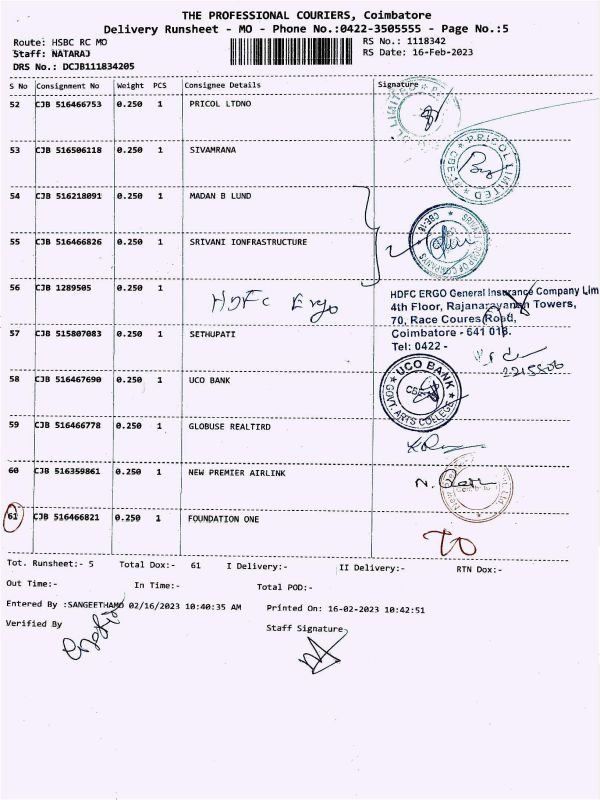 THE PROFESSIONAL COURIERS, Coimbatore
Delivery Runsheet - MO - Phone No.:0422-3505555 - Page No.:5
Route: HSBC RC MO
RS No.: 1118342
Staff: NATARAJ
RS Date: 16-Feb-2023
DRS No.: DCJB111834205
S No Consignment No Weight PCS Consignee Details Signature
52 CJB 516466753 0.250 1 PRICOL LTDNO
53 CJB 516506118 0.250 1 SIVAMRANA
PRICOL LIMITED
54 CJB 516218091 0.250 1 MADAN B LUND
55 CJB 516466826 0.250 1 SRIVANI IONFRASTRUCTURE
56 CJB 1289505 0.250 1
HDFC Ergo
HDFC ERGO General Insurance Company Lim
4th Floor, Rajanarayanan Towers,
70, Race Coures Road,
Coimbatore - 641 018.
Tel: 0422 -
2215506
57 CJB 515807083 0.250 1 SETHUPATI
58 CJB 516467690 0.250 1 UCO BANK
UCO BANK
CBE
GOVT ARTS COLLEGE
59 CJB 516466778 0.250 1 GLOBUSE REALTIRD
60 CJB 516359861 0.250 1 NEW PREMIER AIRLINK
61 CJB 516466821 0.250 1 FOUNDATION ONE
TO
Tot. Runsheet:- 5 Total Dox:- 61 I Delivery:- II Delivery:- RTN Dox:-
Out Time:- In Time:- Total POD:-
Entered By :SANGEETHAMO 02/16/2023 10:40:35 AM Printed On: 16-02-2023 10:42:51
Verified By
Staff Signature